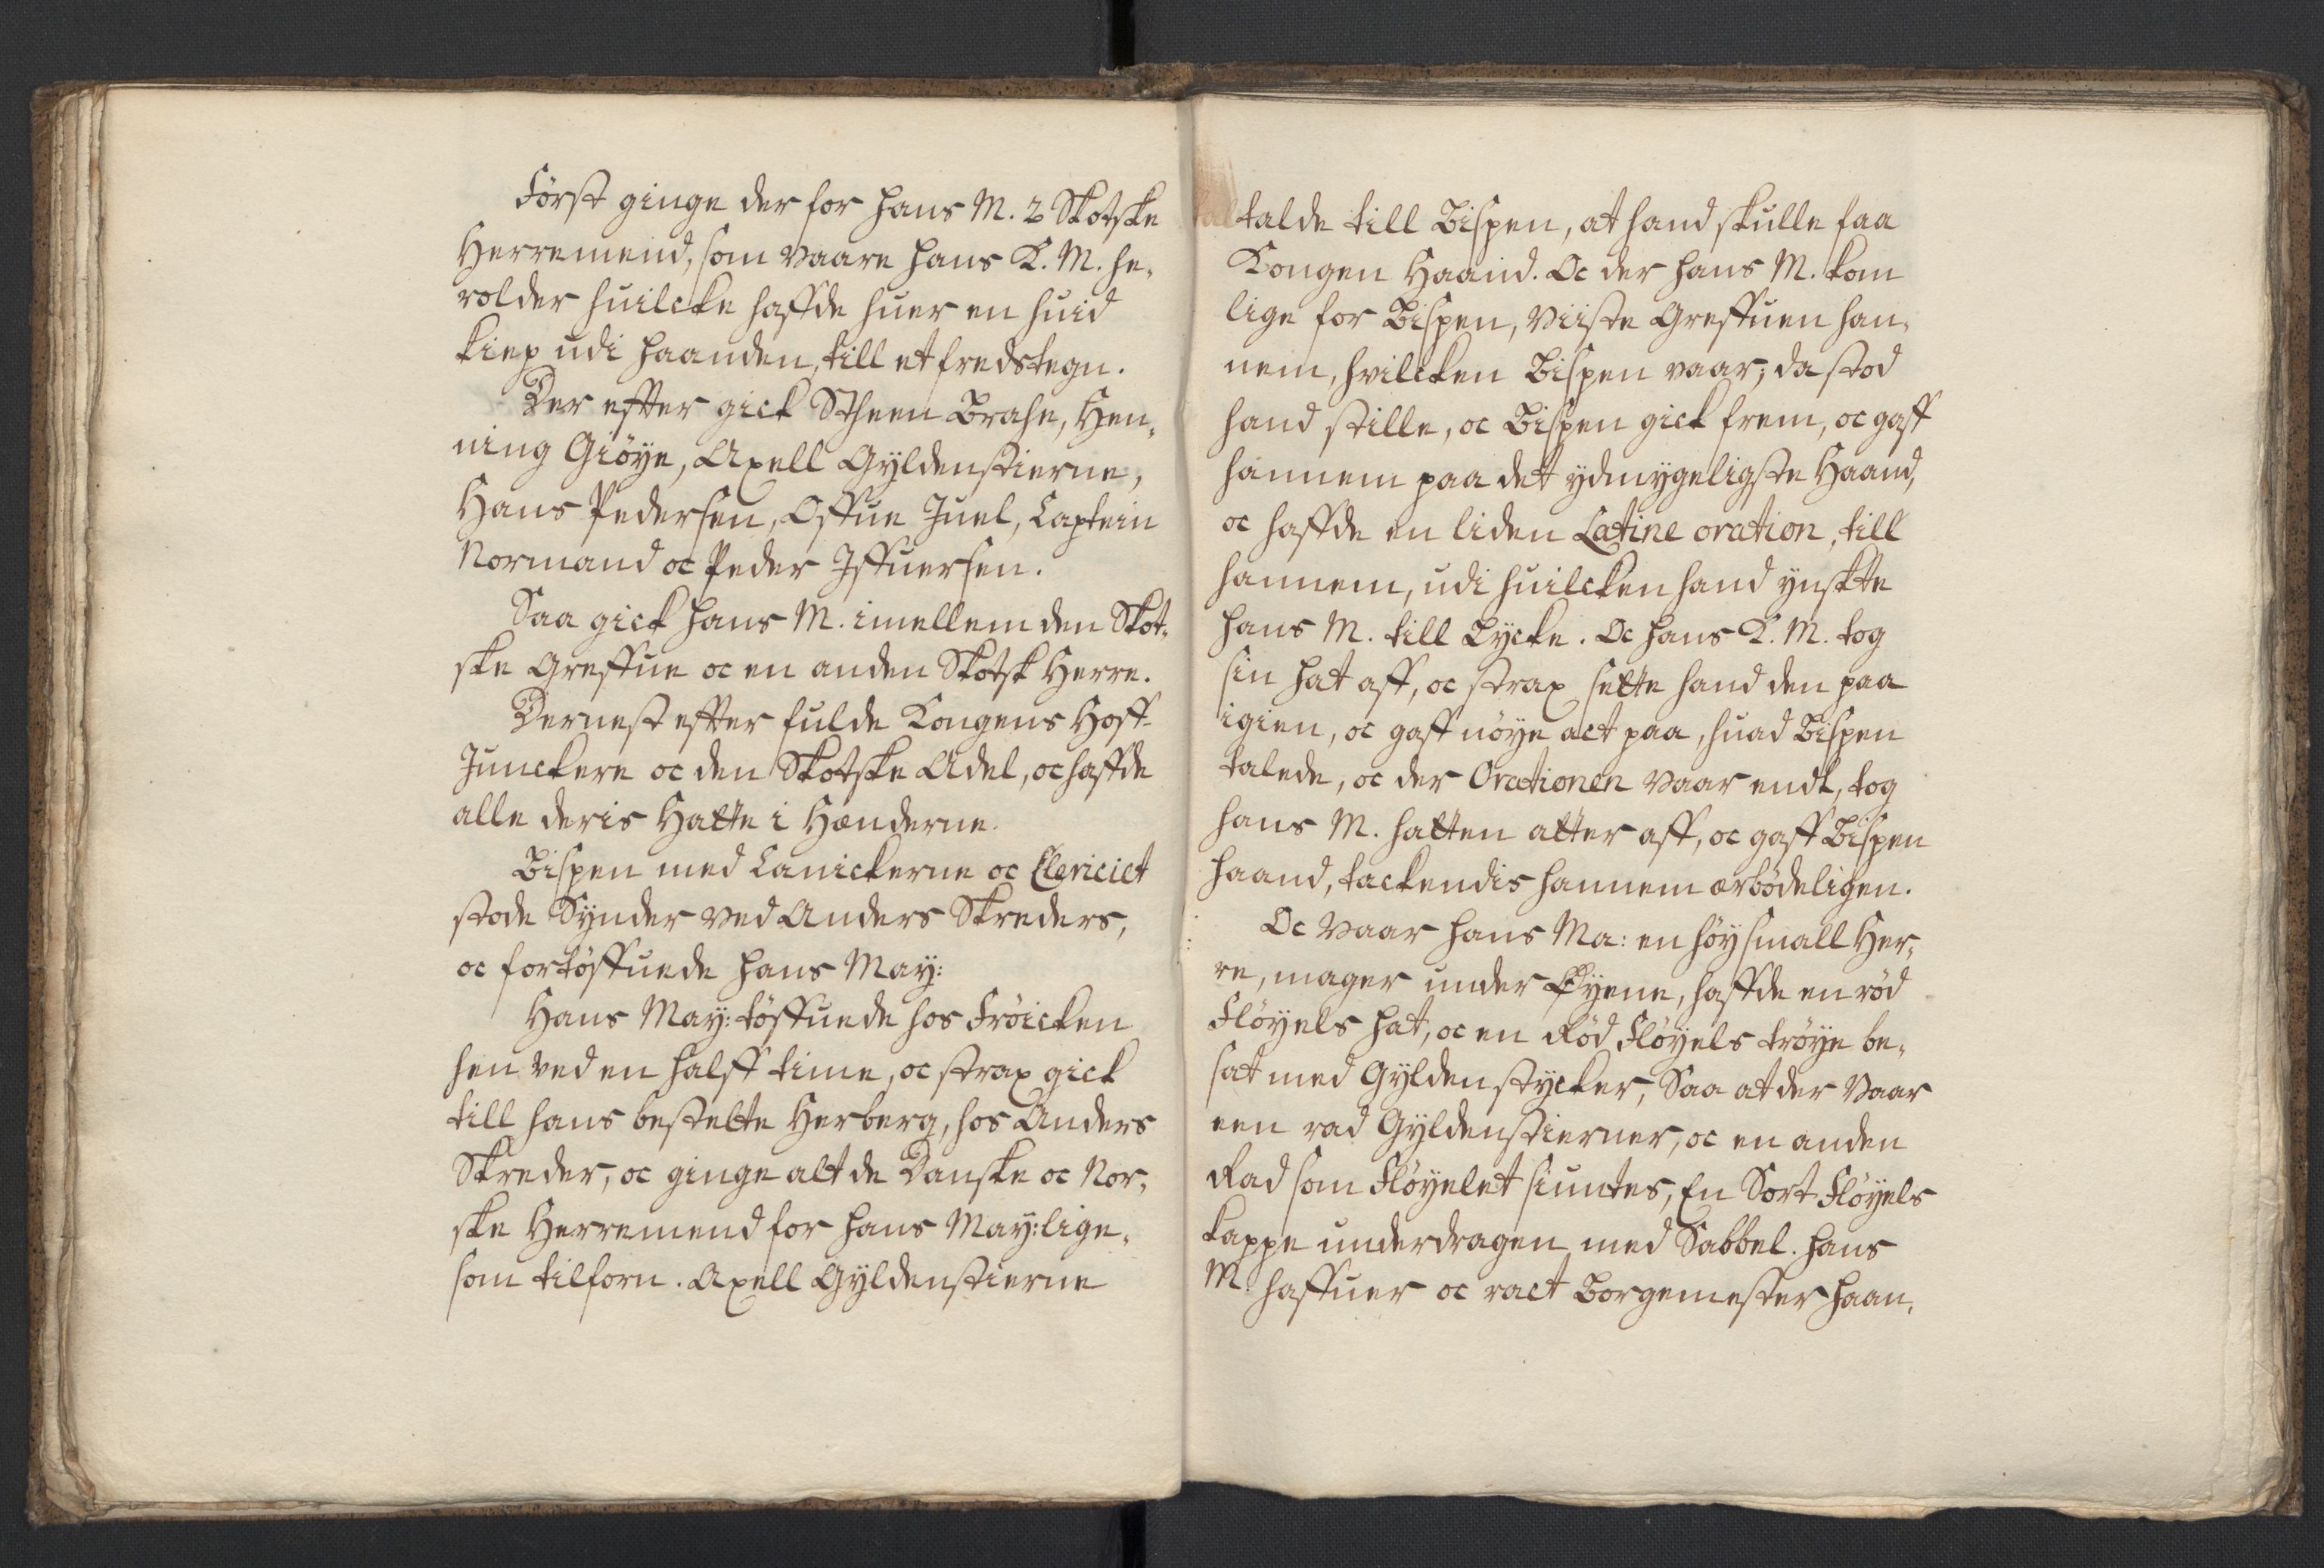 Først ginge der for hans M. 2 Skotske
Herremend, som vaare hans K. M. he,
rolder huilcke haffde huer en huid
kiep udi haanden, till et fredstegn.
Der effter gick Stheen Brahe, Hen,
ning Giøye, Axell Gyldenstierne,
Hans Pedersen, Offue Juel, Captein
Normand oc Peder Iffuersen.
Saa gick hans M. imellem den Skot,
ske Greffue oc en anden Skotsk Herre.
Dernest effter fulde Kongens Hoff-
Junckere oc den Skotske Adel, oc haffde
alle deris Hatte i Hænderne.
Bispen med Canickerne oc Clericiet
stode Synder ved Anders Skreders,
oc fortøffuede hans May:
Hans May: tøffuede hos Frøicken
hen ved en halff time, oc strax gick
till hans bestelte Herberg, hos Anders
Skreder, oc ginge alt de Danske oc Nor,
ske Herremend for hans May: lige,
som tilforn. Axell Gyldenstierne
talde till Bispen, at hand skulle faa
Kongen Haand. Oc der hans M. kom
lige for Bispen, viiste Greffuen han,
nem, hvilcken Bispen vaar; da stod
hand stille, oc Bispen gick frem, oc gaff
hannem paa det ydmygeligste Haand,
oc haffde en liden Latine oration, till
hannem, udi huilcken hand ynskte
hans M. till Lycke. Oc hans K. M. tog
sin hat aff, oc strax sette hand den paa
igien, oc gaff nøye act paa, huad Bispen
talede, oc der Orationen vaar endt, tog
hans M. hatten atter aff, oc gaff Bispen
haand, tackendis hannem ærbødeligen.
Oc vaar hans Ma: en høy small Her,
re, mager under Øyene, haffde en rød
Fløyels hat, oc en Rød Fløyels trøye be,
sat med Gyldenstycker, Saa at der vaar
een rad Gyldenstierner, oc en anden
Rad som Fløyelet siuntes, En Sort Fløyels
kappe underdragen med Sabbel. hans
M. haffuer oc ract Borgemester haan,